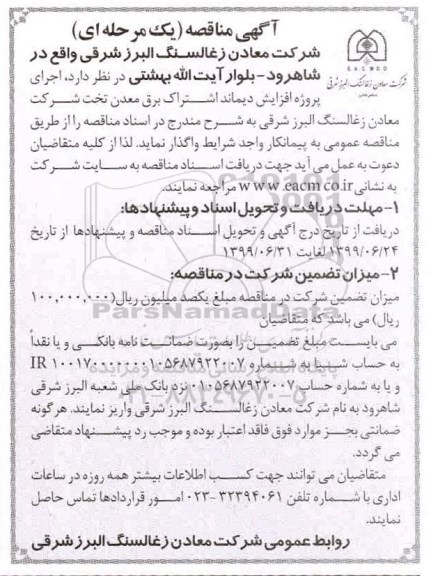 آگهی مناقصه (یک مرحله ای)
شرکت معادن زغالسنگ البرز شرقی واقع در
شاهرود - بلوار آیت الله بهشتی در نظر دارد، اجرای
پروژه افزایش دیماند اشتراک برق معدن تخت شرکت
EACMCO
شرکت معادن زغالسنگ البرز شرقی
معادن زغالسنگ البرز شرقی به شرح مندرج در اسناد مناقصه را از طریق
مناقصه عمومی به پیمانکار واجد شرایط واگذار نماید. لذا از کلیه متقاضیان
دعوت به عمل می آید جهت دریافت اسناد مناقصه به سایت شرکت
به نشانی www.eacmco.ir مراجعه نمایند.
۱- مهلت دریافت و تحویل اسناد و پیشنهادها:
دریافت از تاریخ درج آگهی و تحویل اسناد مناقصه و پیشنهادها از تاریخ
۱۳۹۹/۰۶/۲۴ لغایت ۱۳۹۹/۰۶/۳۱
۲- میزان تضمین شرکت در مناقصه:
میزان تضمین شرکت در مناقصه مبلغ یکصد میلیون ریال (۱۰۰,۰۰۰,۰۰۰
ریال) می باشد که متقاضیان
ParsNamadData
می بایست مبلغ تضمین را بصورت ضمانت نامه بانکی و یا نقداً
به حساب شبا به شماره IR ۱۰۰۱۷۰۰۰۰۰۰۰۱۰۵۶۸۷۹۲۲۰۰۷
و یا به شماره حساب ۰۱۰۵۶۸۷۹۲۲۰۰۷ نزد بانک ملی شعبه البرز شرقی
۰۲۱-۸۸۳۴۹۶۷۰-۵
شاهرود به نام شرکت معادن زغالسنگ البرز شرقی واریز نمایند. هرگونه
ضمانتی بجز موارد فوق فاقد اعتبار بوده و موجب رد پیشنهاد متقاضی
می گردد.
متقاضیان می توانند جهت کسب اطلاعات بیشتر همه روزه در ساعات
اداری با شماره تلفن ۳۲۳۹۴۰۶۱-۰۲۳ امور قراردادها تماس حاصل
نمایند.
روابط عمومی شرکت معادن زغالسنگ البرز شرقی